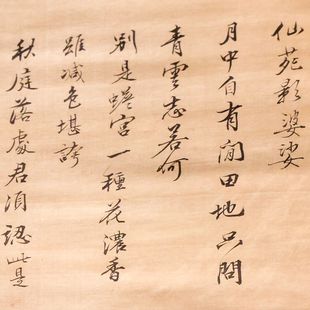 仙苑影婆娑
月中自有閒田地只問
青雲志若何
别是蟾宮一種花濃香
雖減色堪誇
秋庭落處君須認此是